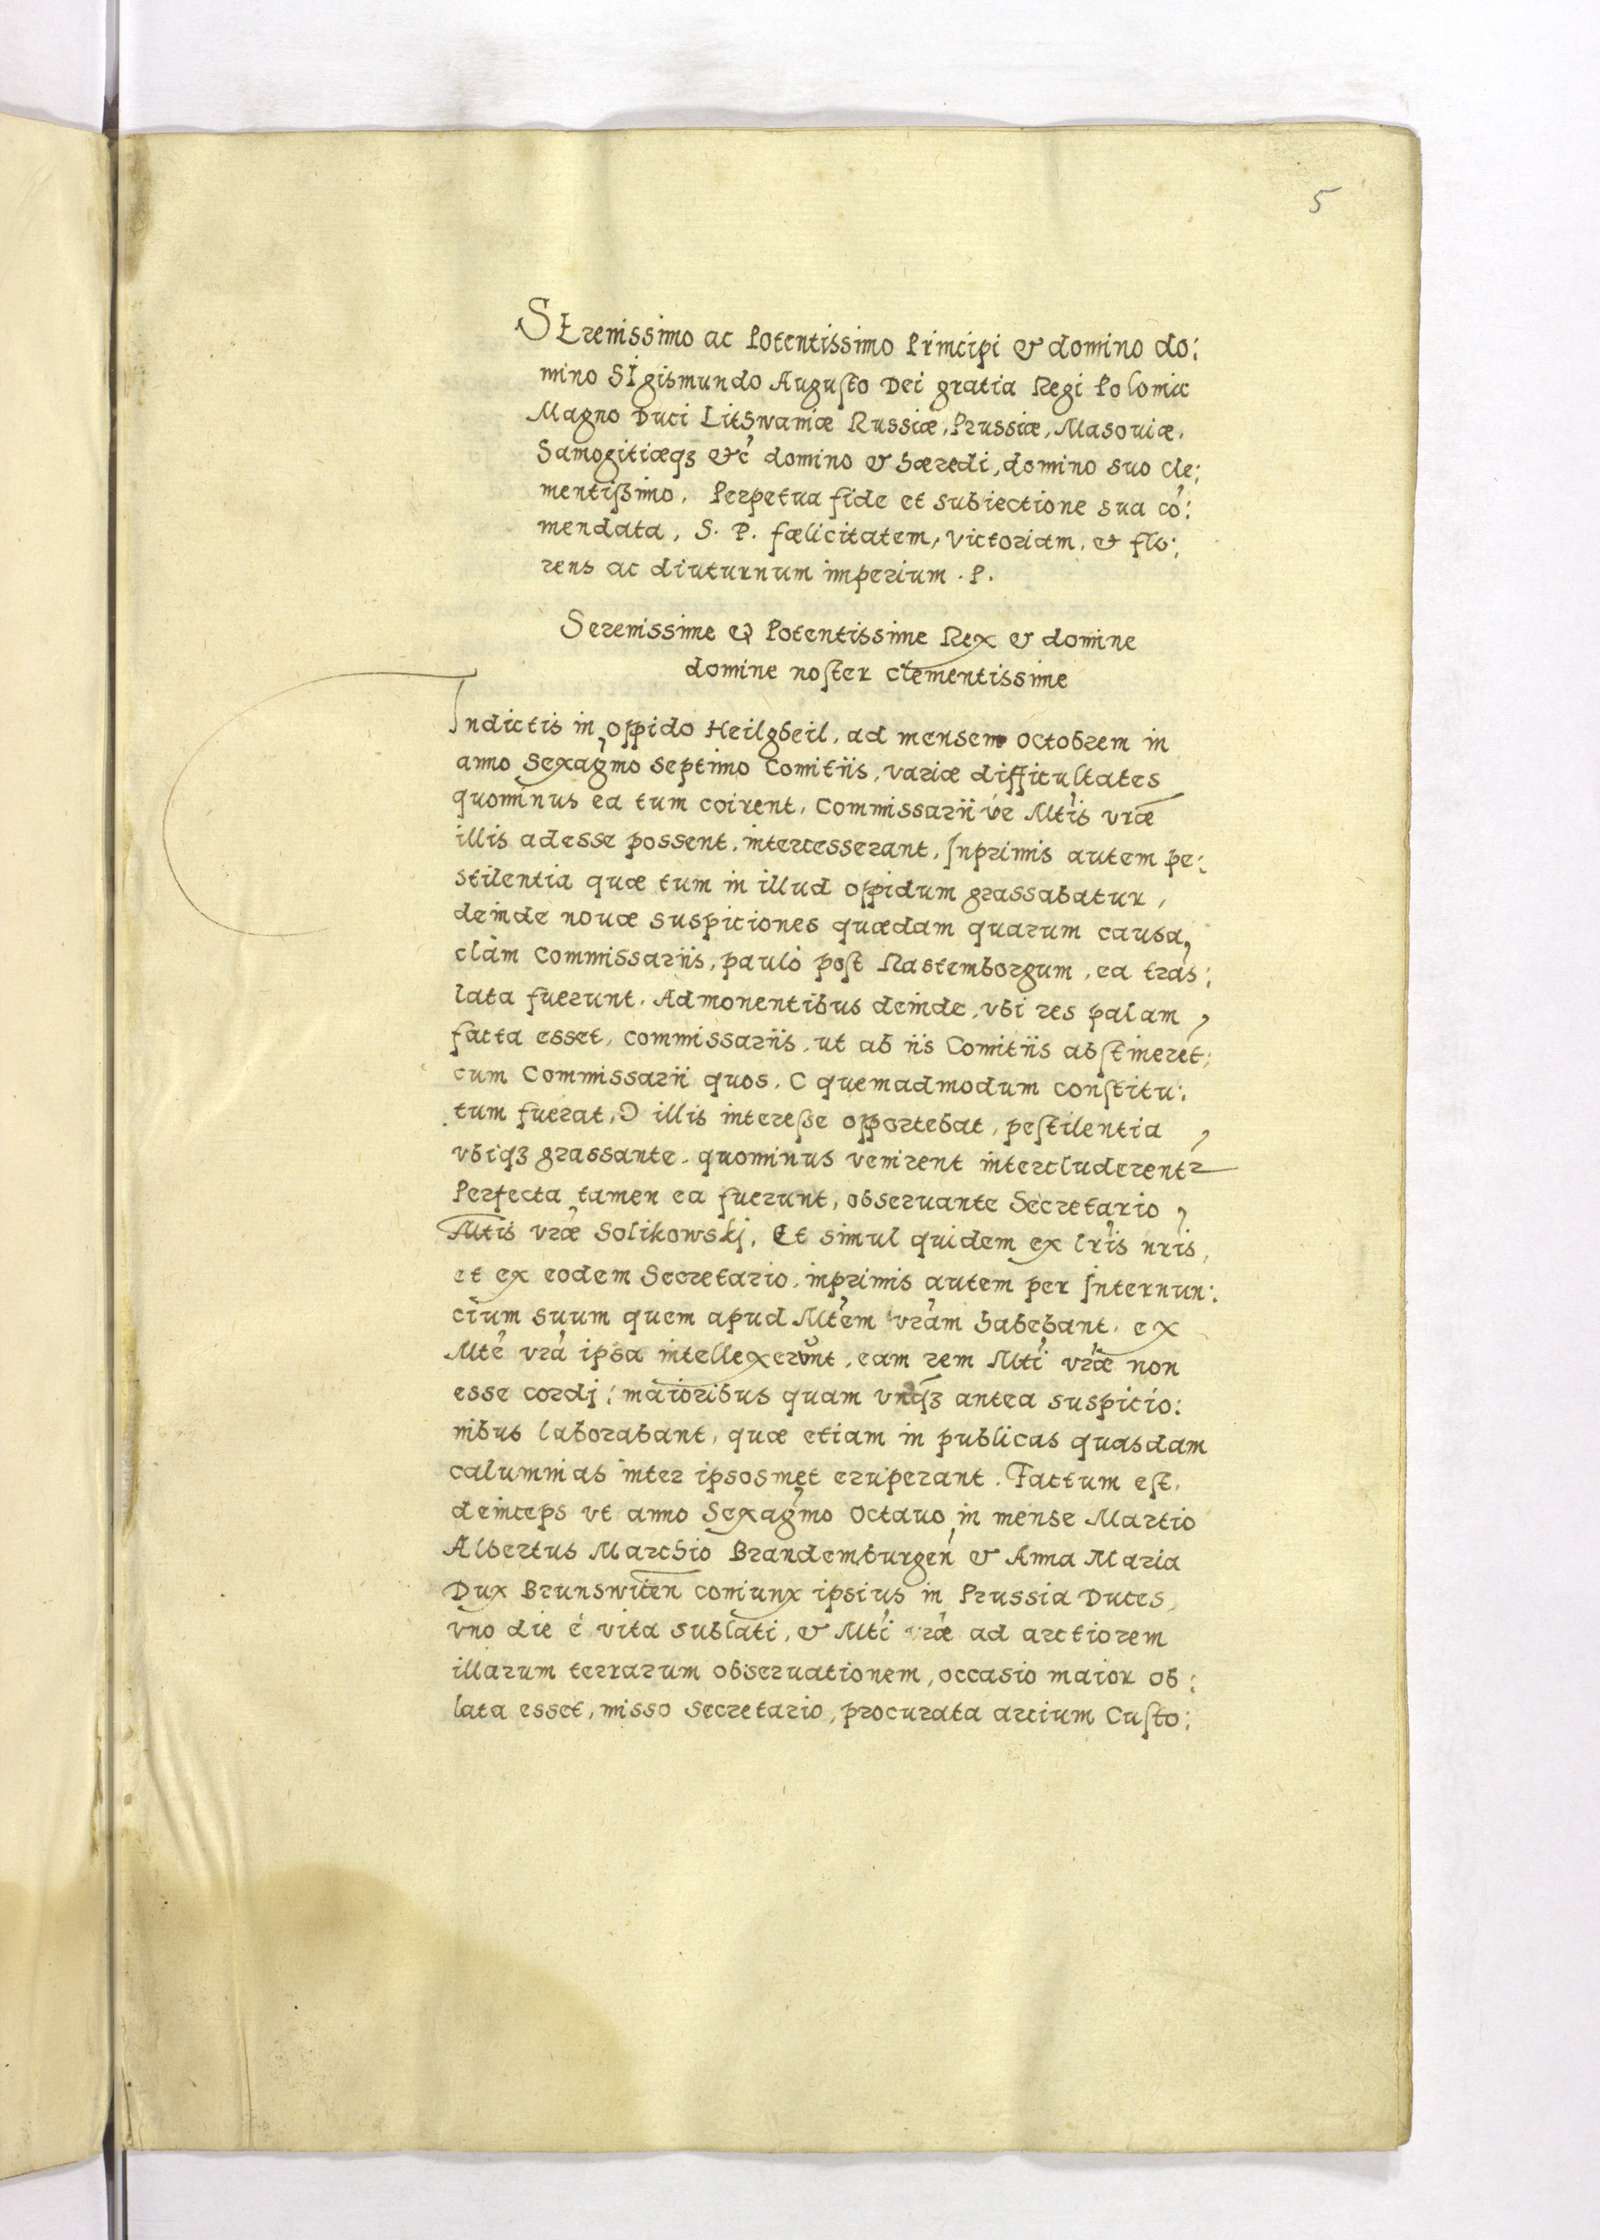 5
SErenissimo ac Potentissimo Principi & domino do:
mino SIgismundo Augusto Dei gratia Regi Poloniæ
Magno Duci Lithwaniæ Russiæ, Prussiæ, Masouiæ,
Samogitiæqȝ &c̓ domino & hæredi, domino suo cle:
mentißimo. Perpetua fide et subiectione sua cō:
mendata, S. P. fœlicitatem, victoriam, & flo:
rens ac diuturnum imperium . P.
Serenissime & Potentissime Rex & domine
domine noster clementissime
Indictis in oppido Heilgbeil, ad mensem Octobrem in
anno Sexag̃mo septimo Comitiis, variæ difficultates
quominus ea tum coirent, Commissarii úe Mtis vræ
illis adesse possent, intercesserant, Inprimis autem pe:
stilentia quæ tum in illud oppidum grassabatur,
deinde nouæ suspiciones quædam quarum causa,
clàm Commissariis, paulò post Rastemborgum, ea trās:
lata fuerunt. Admonentibus deinde, vbi res palam
facta esset, commissariis, ut ab iis Comitiis abstinerēt;
cum Commissarii quos, C quemadmodum constitu:
tum fuerat, Ɔ illis interesse opportebat, pestilentia
vbiqȝ grassante, quominus venirent intercluderentr
Perfecta tamen ea fuerunt, obseruante Secretario
Mtis vræ Solikowskj. Et simul quidem ex lr̃is nr̃is,
et ex eodem Secretario, inprimis autem per Internun:
cium suum quem apud Mtem vram habebant, ex
Mte vra ipsa intellexerunt, eam rem Mti vræ non
esse cordj; maioribus quam vnqȝ antea suspicio:
nibus laborabant, quæ etiam in publicas quasdam
calumnias inter ipsosmet eruperant. Factum est,
deinceps vt anno Sexag̃mo Octauo in mense Martio
Albertus Marchio Brandemburgeń & Anna Maria
Dux Brunswiceñ coniunx ipsius in Prussia Duces,
vno die è vita sublati, & Mti vræ ad arctiorem
illarum terrarum obseruationem, occasio maior ob:
lata esset, misso Secretario, procurata arcium Custo: